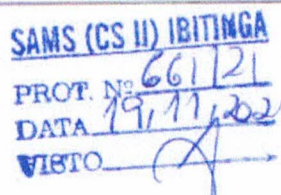 SAMS (CS II) IBITINGA
PROT. Nº 661/21
DATA 19,11,202
VISTO